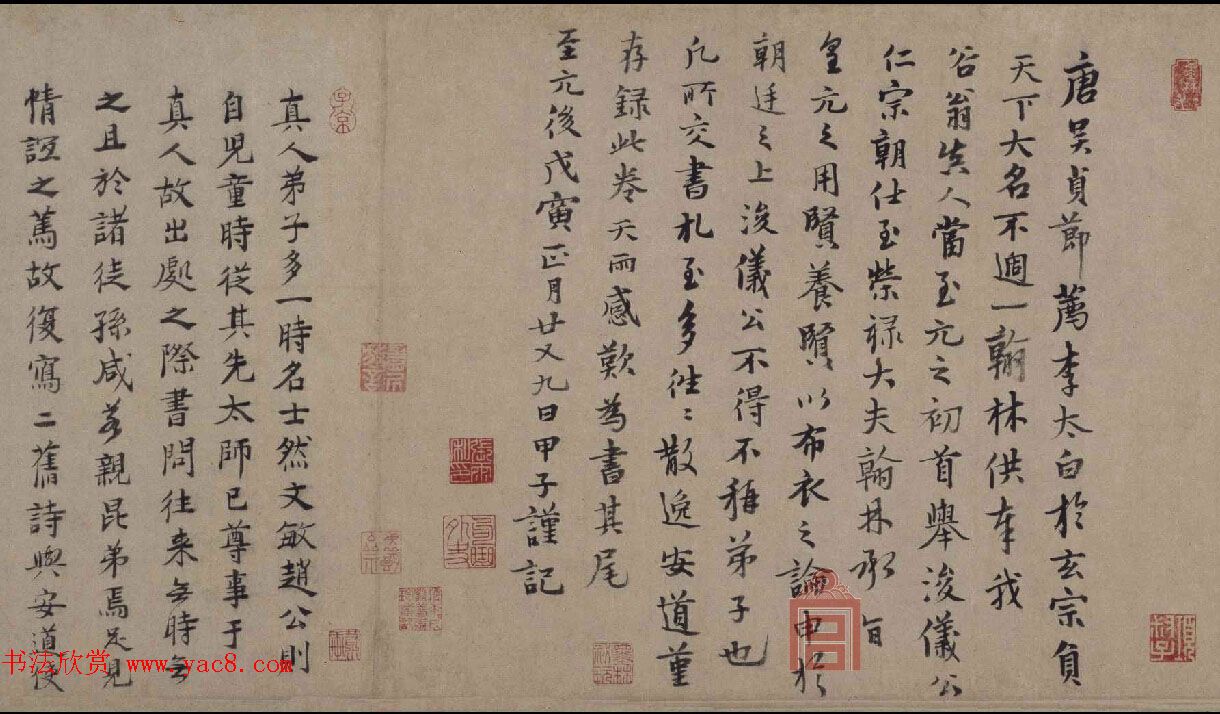 唐吴貞節薦李太白於玄宗負
天下大名不過一翰林供奉我
谷翁真人當至元之初首舉浚儀公
仁宗朝仕至榮禄大夫翰林承旨
皇元之用賢養賢以布衣之論申於
朝廷之上浚儀公不得不稱弟子也
凡所交書札至多往〻散逸安道堇
存録此卷天雨感歎為書其尾
至元後戊寅正月廿又九日甲子謹記
真人弟子多一時名士然文敏趙公則
自児童時従其先太師已尊事于
真人故出處之際書問往来無時無
之且於諸徒孫咸若親昆弟焉足見
情誼之篤故復寫二舊詩與安道後
張雨私印
子京
书法欣赏 www.yac8.com